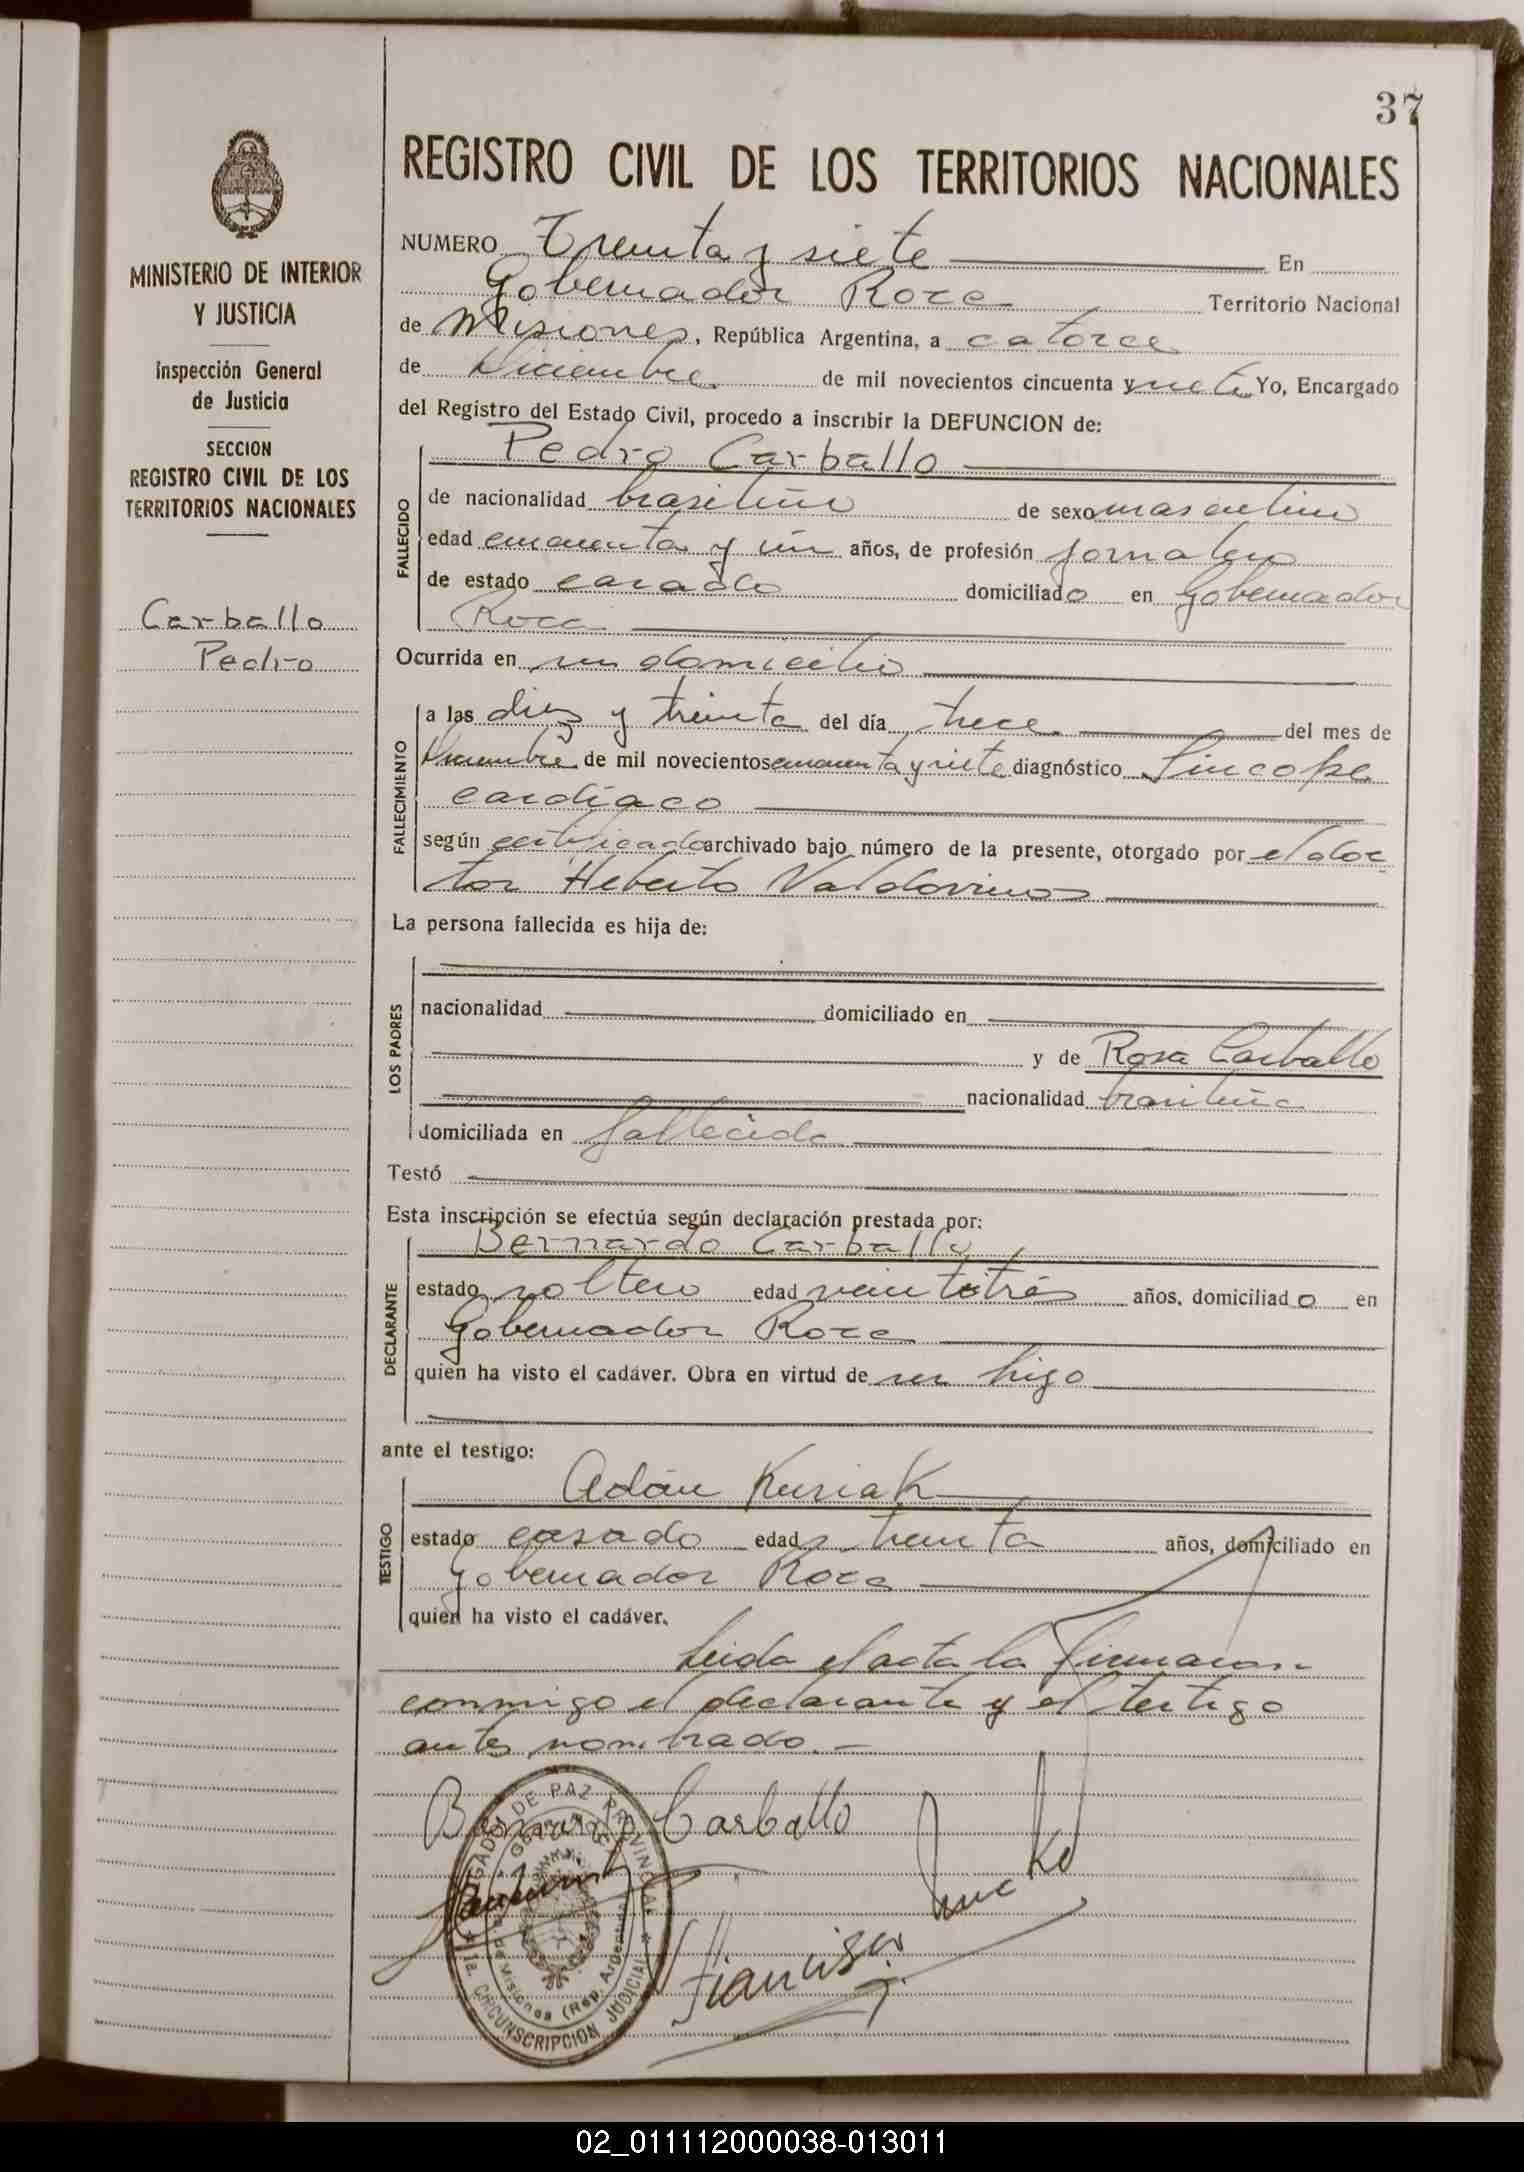 37
REGISTRO CIVIL DE LOS TERRITORIOS NACIONALES
MINISTERIO DE INTERIOR
Y JUSTICIA
Inspección General
de Justicia
SECCION
REGISTRO CIVIL DE LOS
TERRITORIOS NACIONALES
Carballo
Pedro
NUMERO Treinta y siete En
Gobernador Roca Territorio Nacional
de Misiones, República Argentina, a catorce
de Diciembre de mil novecientos cincuenta y siete Yo, Encargado
del Registro del Estado Civil, procedo a inscribir la DEFUNCION de:
FALLECIDO
Pedro Carballo
de nacionalidad brasileño de sexo masculino
edad cincuenta y un años, de profesión jornalero
de estado casado domiciliado en Gobernador
Roca
Ocurrida en su domicilio
FALLECIMIENTO
a las diez y treinta del día trece del mes de
Diciembre de mil novecientos cincuenta y siete diagnóstico Síncope
cardíaco
según certificado archivado bajo número de la presente, otorgado por el doc
tor Heberto Valdovinos
La persona fallecida es hija de:
LOS PADRES
nacionalidad domiciliado en
y de Rosa Carballo
nacionalidad brasileña
domiciliada en fallecida
Testó
Esta inscripción se efectúa según declaración prestada por:
DECLARANTE
Bernardo Carballo
estado soltero edad veintitrés años, domiciliado en
Gobernador Roca
quien ha visto el cadáver. Obra en virtud de ser higo
ante el testigo:
TESTIGO
Adán Kusiak
estado casado edad treinta años, domiciliado en
Gobernador Roca
quien ha visto el cadáver.
Leida el acta la firmaron
conmigo el declarante y el testigo
antes nombrado.-
Bernardo Carballo
JUZGADO DE PAZ PROVINCIAL
de Misiones (Rep. Argentina)
1a. CIRCUNSCRIPCION JUDICIAL
02_011112000038-013011